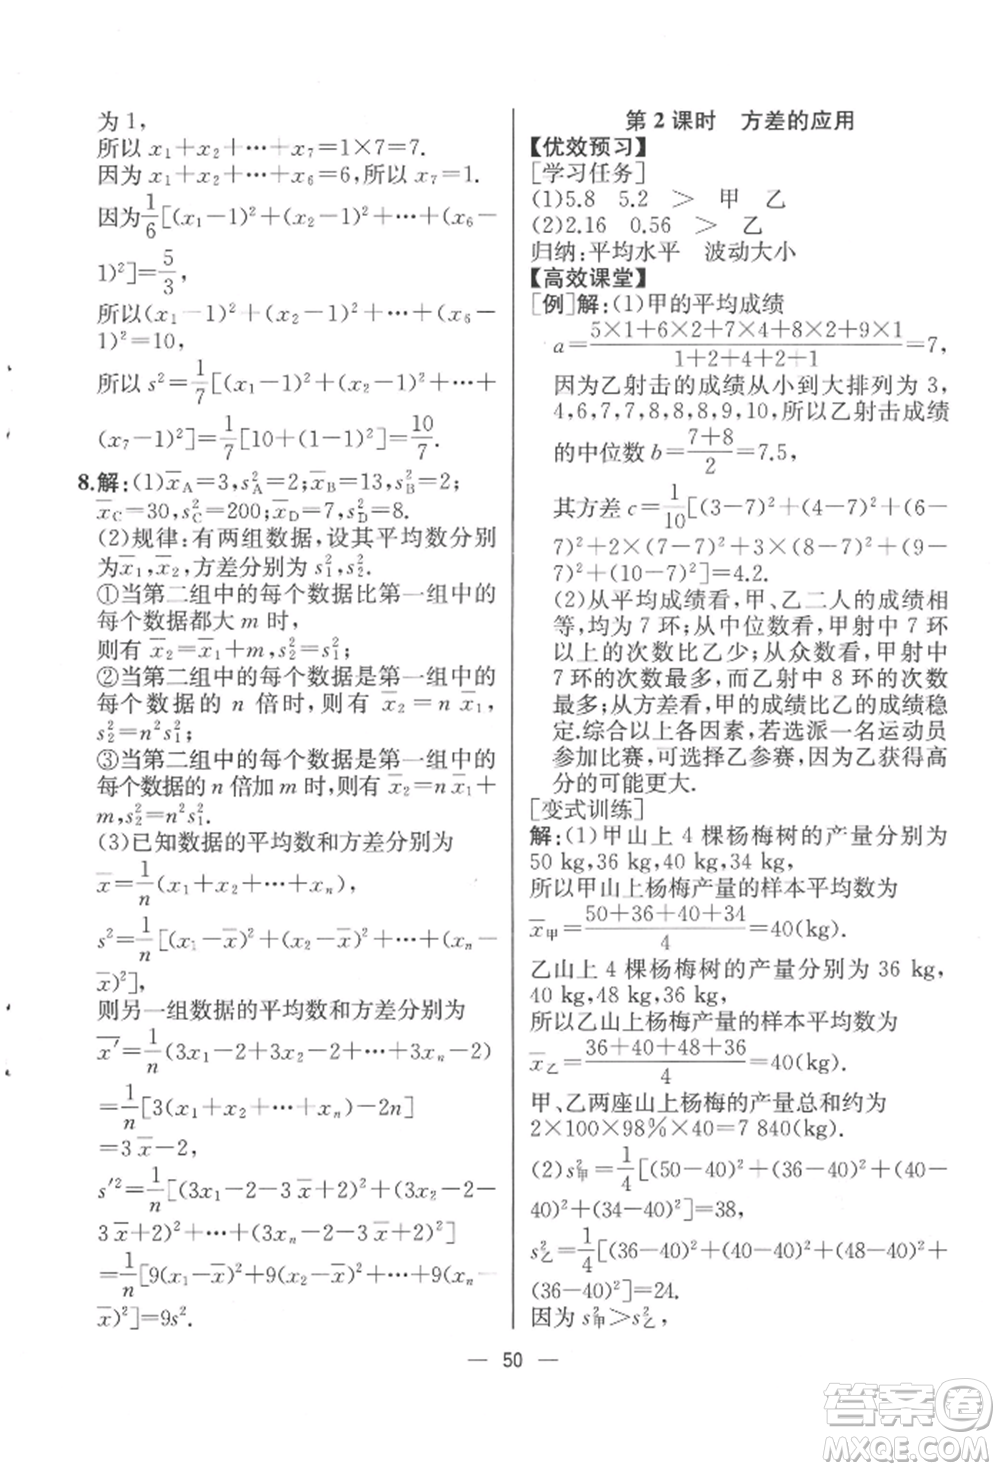 为1,
所以 x₁+x₂+…+x₇=1×7=7.
因为 x₁+x₂+…+x₆=6,所以 x₇=1.
因为1/6[(x₁-1)²+(x₂-1)²+…+(x₆-
1)²]=5/3,
所以(x₁-1)²+(x₂-1)²+…+(x₆-
1)²=10,
所以 s²=1/7[(x₁-1)²+(x₂-1)²+…+
(x₇-1)²]=1/7[10+(1-1)²]=10/7.
8.解:(1)x̅_A=3,s²_A=2;x̅_B=13,s²_B=2;
x̅_C=30,s²_C=200;x̅_D=7,s²_D=8.
(2)规律:有两组数据,设其平均数分别
为x̅₁,x̅₂,方差分别为s²₁,s²₂.
①当第二组中的每个数据比第一组中的
每个数据都大 m 时,
则有 x̅₂=x̅₁+m,s²₂=s²₁;
②当第二组中的每个数据是第一组中的
每个数据的 n 倍时,则有 x̅₂=n x̅₁,
s²₂=n²s²₁;
③当第二组中的每个数据是第一组中的
每个数据的 n 倍加 m 时,则有 x̅₂=n x̅₁+
m,s²₂=n²s²₁.
(3)已知数据的平均数和方差分别为
x̅=1/n(x₁+x₂+…+xₙ),
s²=1/n[(x₁-x̅)²+(x₂-x̅)²+…+(xₙ-
x̅)²],
则另一组数据的平均数和方差分别为
x̅′=1/n(3x₁-2+3x₂-2+…+3xₙ-2)
=1/n[3(x₁+x₂+…+xₙ)-2n]
=3x̅-2,
s′²=1/n[(3x₁-2-3x̅+2)²+(3x₂-2-
3x̅+2)²+…+(3xₙ-2-3x̅+2)²]
=1/n[9(x₁-x̅)²+9(x₂-x̅)²+…+9(xₙ-
x̅)²]=9s².
第2课时 方差的应用
【优效预习】
[学习任务]
(1)5.8 5.2 > 甲 乙
(2)2.16 0.56 > 乙
归纳:平均水平 波动大小
【高效课堂】
[例]解:(1)甲的平均成绩
a=(5×1+6×2+7×4+8×2+9×1)/(1+2+4+2+1)=7,
因为乙射击的成绩从小到大排列为 3,
4,6,7,7,8,8,8,9,10,所以乙射击成绩
的中位数 b=(7+8)/2=7.5,
其方差 c=1/10[(3-7)²+(4-7)²+(6-
7)²+2×(7-7)²+3×(8-7)²+(9-
7)²+(10-7)²]=4.2.
(2)从平均成绩看,甲、乙二人的成绩相
等,均为 7 环;从中位数看,甲射中 7 环
以上的次数比乙少;从众数看,甲射中
7 环的次数最多,而乙射中 8 环的次数
最多;从方差看,甲的成绩比乙的成绩稳
定.综合以上各因素,若选派一名运动员
参加比赛,可选择乙参赛,因为乙获得高
分的可能更大.
[变式训练]
解:(1)甲山上 4 棵杨梅树的产量分别为
50 kg,36 kg,40 kg,34 kg,
所以甲山上杨梅产量的样本平均数为
x̅甲=(50+36+40+34)/4=40(kg).
乙山上 4 棵杨梅树的产量分别为 36 kg,
40 kg,48 kg,36 kg,
所以乙山上杨梅产量的样本平均数为
x̅乙=(36+40+48+36)/4=40(kg).
甲、乙两座山上杨梅的产量总和约为
2×100×98%×40=7 840(kg).
(2)s²甲=1/4[(50-40)²+(36-40)²+(40-
40)²+(34-40)²]=38,
s²乙=1/4[(36-40)²+(40-40)²+(48-40)²+
(36-40)²]=24.
因为 s²甲>s²乙,
— 50 —
答案圈
MXQE.COM